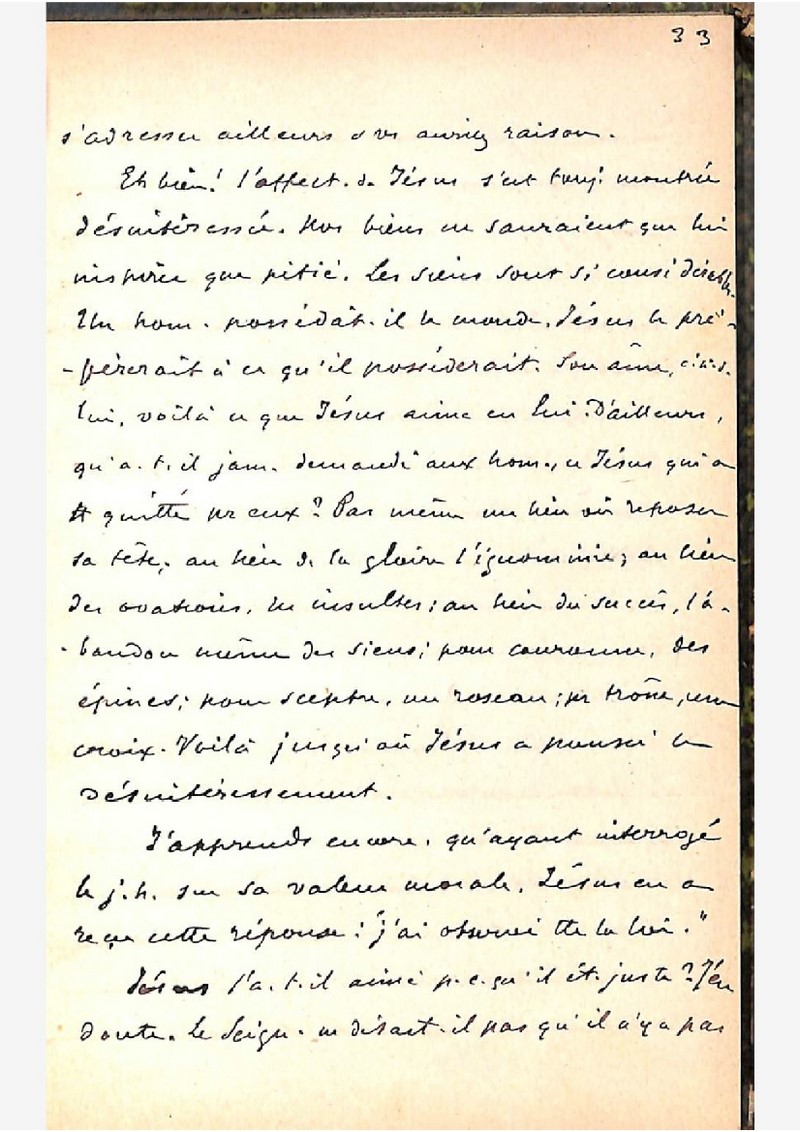 33
s'adresser ailleurs & vs auriez raison.
Eh bien! l'affect. de Jésus s'est touj. montrée
désintéressée. Nos biens ne sauraient que lui
inspirer que pitié. Les siens sont si considérables.
Un hom. possédât-il le monde, Jésus le pré-
-férerait à ce qu'il posséderait. Son âme, c.à.d.
lui, voilà ce que Jésus aime en lui. D'ailleurs,
qu'a-t-il jam. demandé aux hom., ce Jésus qui a
tt quitté pr eux? Pas même un lieu où reposer
sa tête; au lieu de la gloire l'ignominie; au lieu
des ovations, les insultes; au lieu du succès, l'a-
-bandon même des siens; pour couronne, des
épines; pour sceptre, un roseau; pr trône, une
croix. Voilà jusqu'où Jésus a poussé le
désintéressement.
J'apprends encore, qu'ayant interrogé
le j.h. sur sa valeur morale, Jésus en a
reçu cette réponse: "j'ai observé tte la loi."
Jésus l'a-t-il aimé p.c.qu'il ét. juste? J'en
doute. Le Seign. ne disait-il pas qu'il n'y a pas